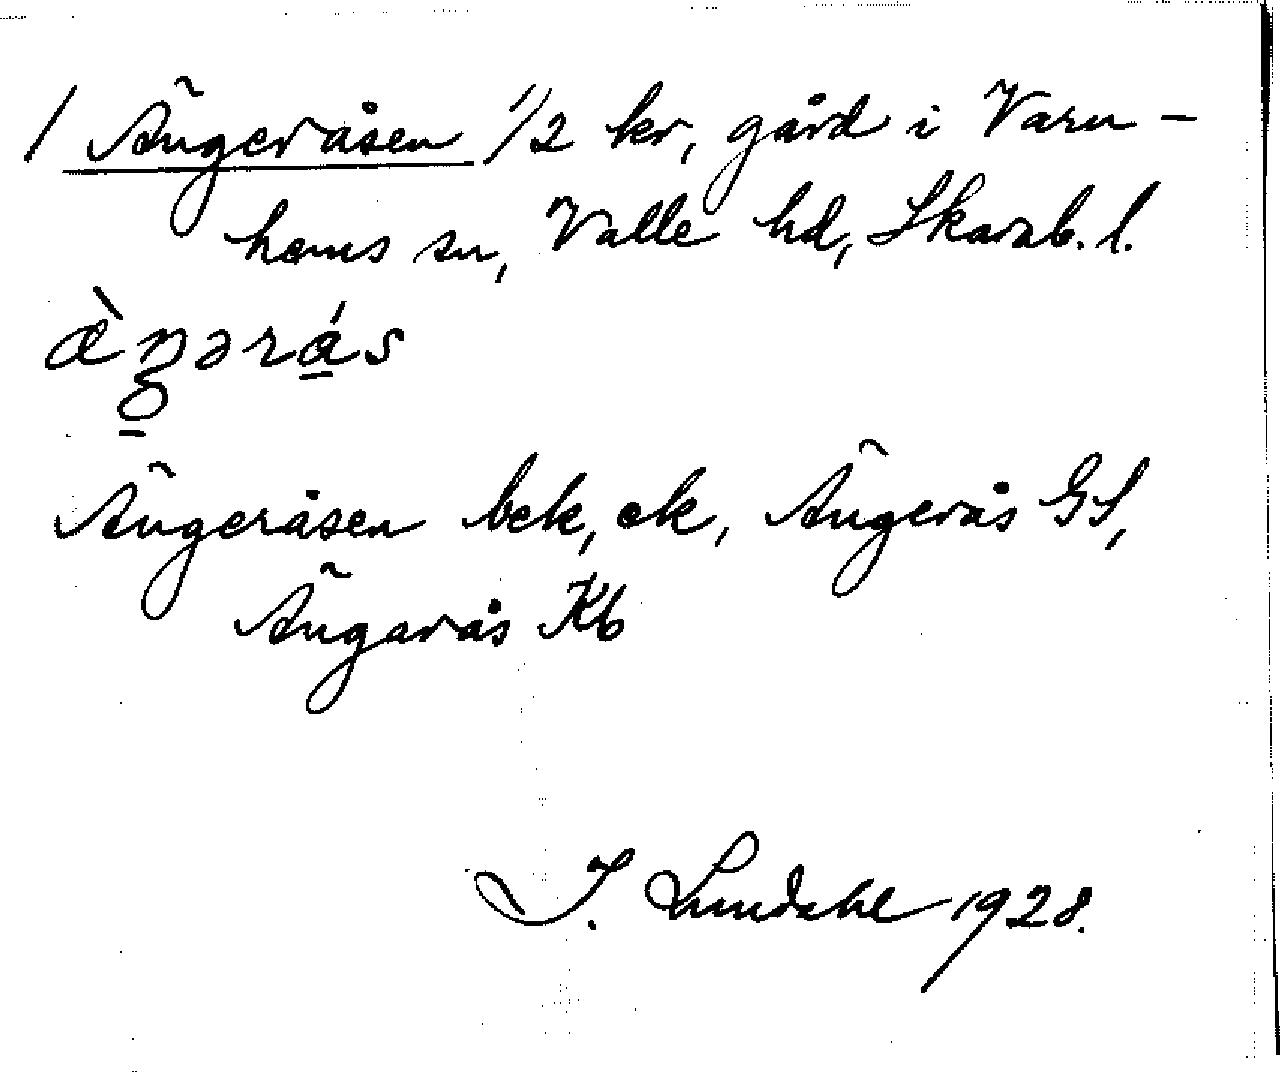 / Ängeråsen 1/2 kr, gård i Varn-
hems sn, Valle hd, Skarab. l.
æ̀ŋərás
g
Ängeråsen bek, ek, Ängerås GS,
Ängarås Kb
I. Lundahl 1928.